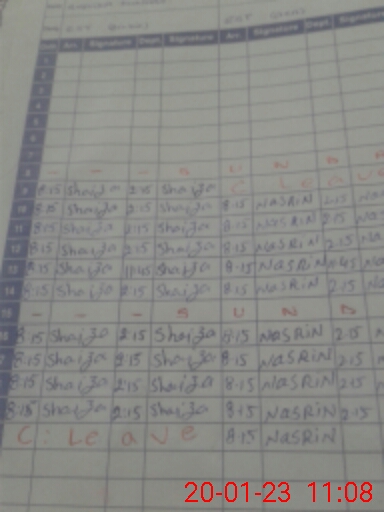 Arr. Signature Dept. Signature Arr. Signature Dept. Signature
1
2
3
4
5
6
7
8 - - - S U N D
9 8:15 Shaija 2:15 Shaija C L e a v e
10 8:15 Shaija 2:15 Shaija 8:15 NASRIN 2:15
11 8:15 Shaija 2:15 Shaija 8:15 NASRIN 2:15
12 8:15 Shaija 2:15 Shaija 8:15 NASRIN 2:15
13 8:15 Shaija 11:45 Shaija 8:15 NASRIN 11:45
14 8:15 Shaija 2:15 Shaija 8:15 NASRIN 2:15
15 - - - S U N D
16 8:15 Shaija 2:15 Shaija 8:15 NASRIN 2:15
8:15 Shaija 2:15 Shaija 8:15 NASRIN 2:15
8:15 Shaija 2:15 Shaija 8:15 NASRIN 2:15
8:15 Shaija 2:15 Shaija 8:15 NASRIN 2:15
C: L e a v e 8:15 NASRIN
20-01-23 11:08